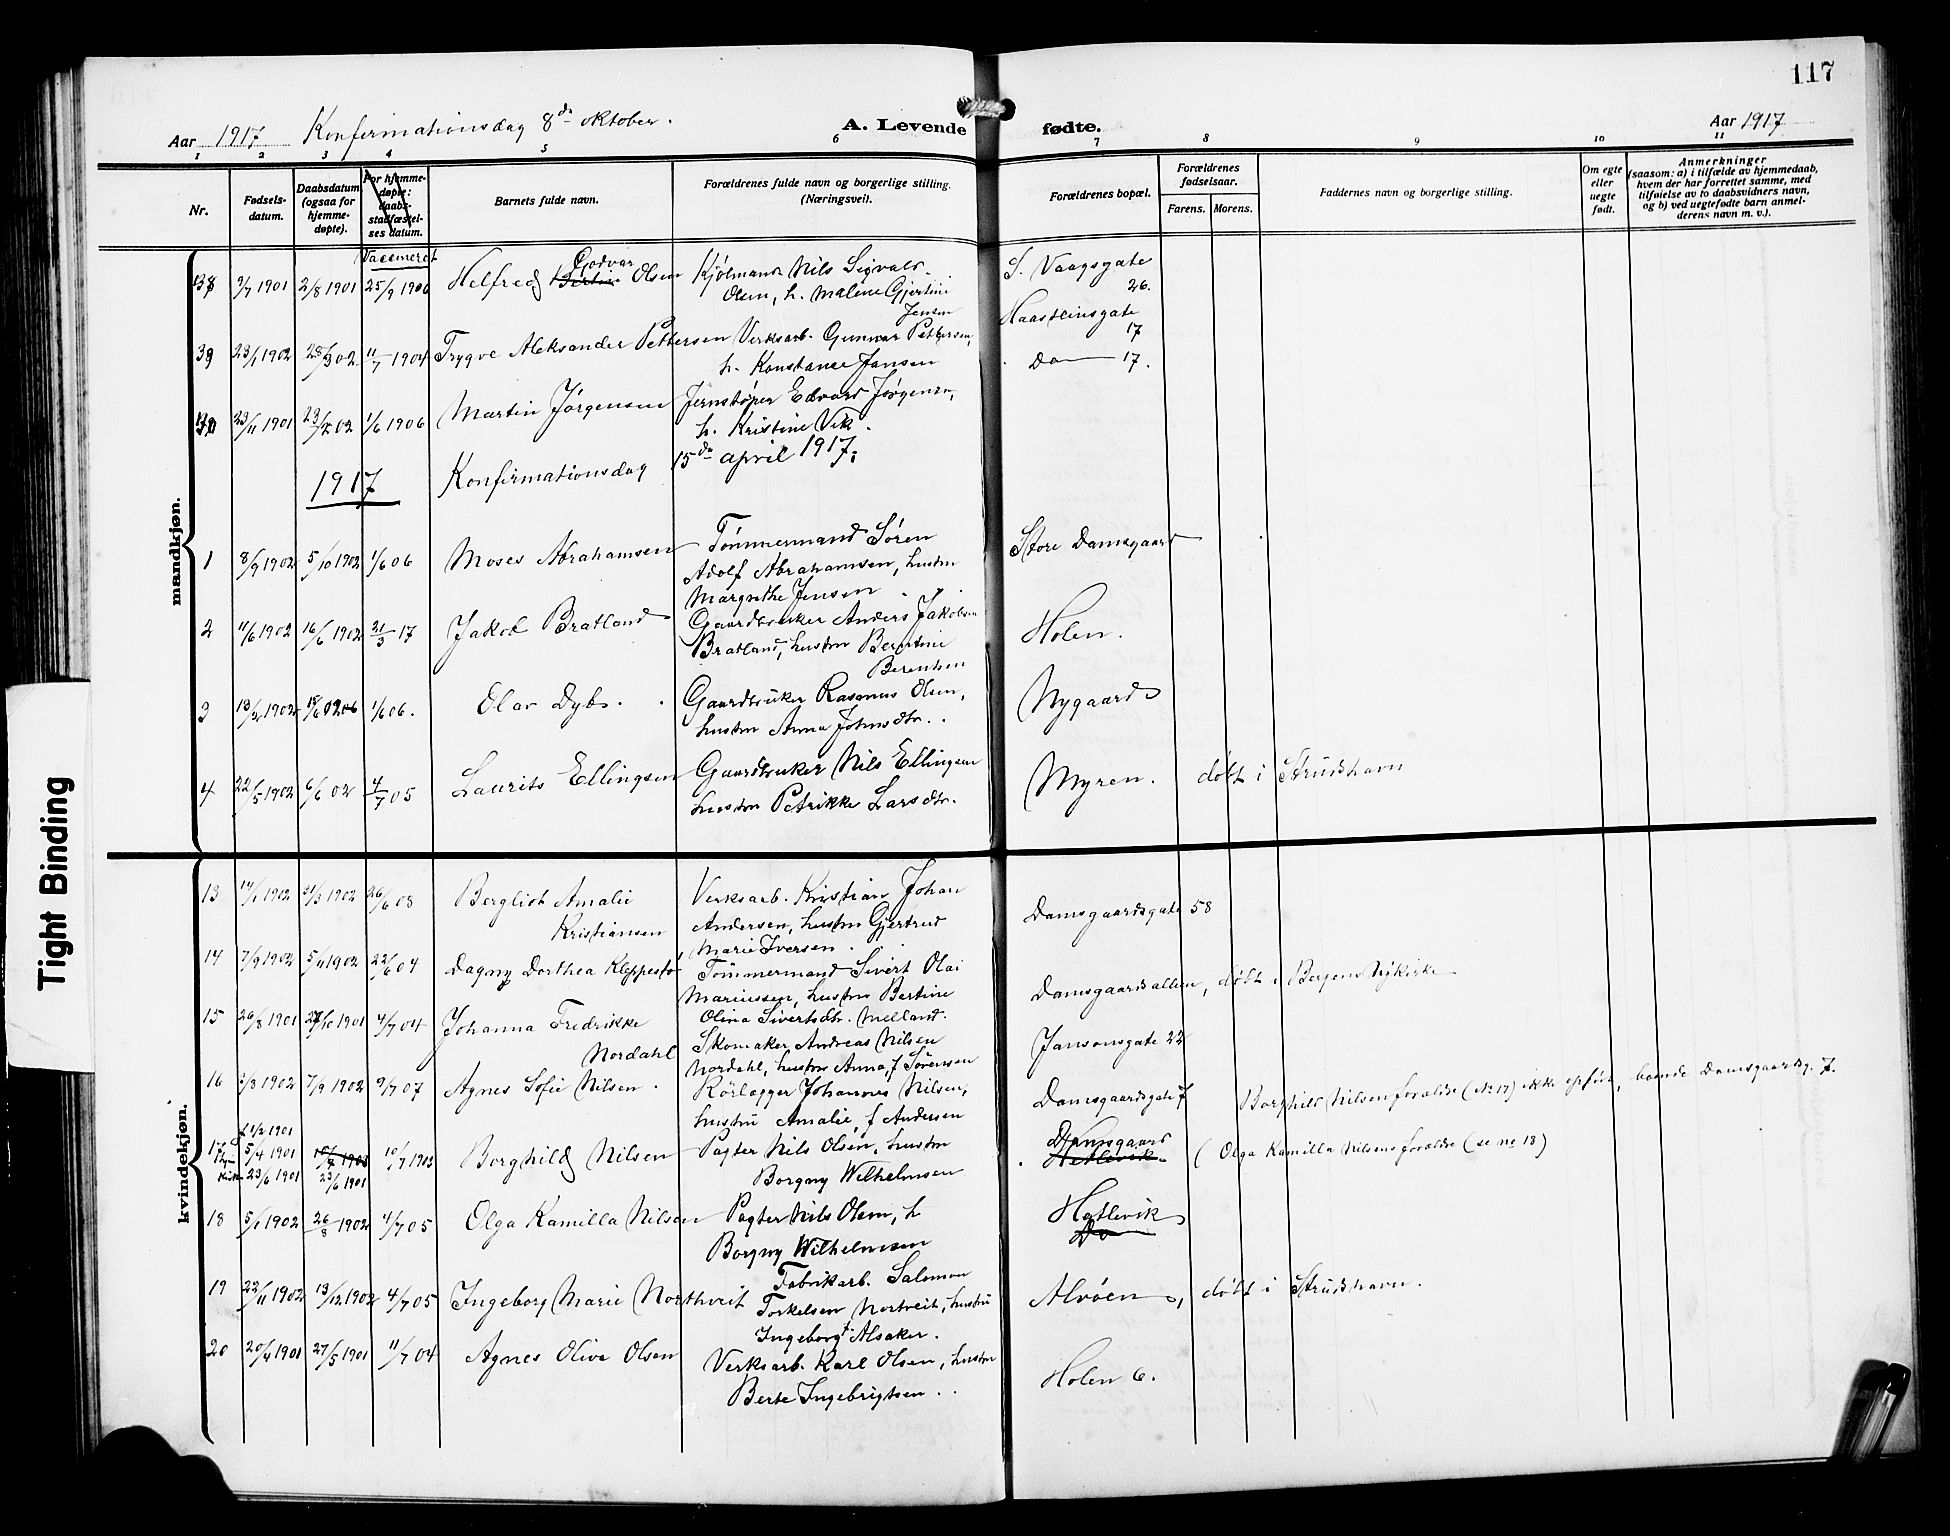 117
Aar 1917 Konfirmationsdag 8de oktober. A. Levende fødte. Aar 1917
1 2 3 4 5 6 7 8 9 10 11
Nr.
Fødsels-
datum.
Daabsdatum
(ogsaa for
hjemme-
døpte).
For hjemme-
døpte:
daabs-
stadfæstel-
ses datum.
Vaccineret
Barnets fulde navn.
Forældrenes fulde navn og borgerlige stilling.
(Næringsvei).
Forældrenes bopæl.
Forældrenes
fødselsaar.
Farens. Morens.
Faddernes navn og borgerlige stilling.
Om egte
eller
uegte
født.
Anmerkninger
(saasom: a) i tilfælde av hjemmedaab,
hvem der har forrettet samme, med
tilføielse av to daabsvidners navn,
og b) ved uegtefødte barn anmel-
derens navn m. v.).
mandkjøn.
9/7 1901 2/8 1901 25/9 1906 Helfred Bertin Godvar Olsen Kjølmann Nils Sigvald
Olsen, h. Maline Gjertine
Jensen
S. Vaagsgate
26.
23/1 1902 1904 Trygve Aleksander Pettersen Verksarb. Gunnar Pettersen,
h. Konstance Jansen
Haasteinsgate
17
Do 17.
23/11 1901 02 1/6 1906 Martin Jørgensen Jernstøper Edvard Jørgensen,
h. Kristine Vik.
1917 Konfirmationsdag 15de april 1917.
1 8/9 1902 5/10 1902 1/6 06 Moses Abrahamsen Tømmermand Søren
Adolf Abrahamsen, hustru
Margrethe Jensen
Store Damsgaard
2 11/6 1902 16/6 1902 21/3 17 Jakob Bratland Gaardbruker Anders Jakobsen
Bratland, hustru Berentine
Berentsen
Holen.
3 1902 1/6 06. Olav Dybs. Gaardbruker Rasmus Olsen,
hustru Anna Johnsdtr.
Nygaard
4 22/5 1902 6/6 02 4/7 05 Laurits Ellingsen Gaardbruker Nils Ellingsen
hustru Petrikke Larsdtr.
Myren. døbt i Strudshavn
kvindekjøn.
13 14/1 1902 31/3 1902 26/6 08 Bergliot Amalie
Kristiansen
Verksarb. Kristian Johan
Andersen, hustru Gjertrud
Marie Iversen.
Damsgaardsgate 58
14 7/9 1902 5/11 1902 22/6 04 Dagny Dorthea Kleppestø Tømmermand Sivert Olai
Mariussen, hustru Bertine
Olina Sivertsdtr. Melland.
Damsgaardsalleen, døbt i Bergens Nykirke
15 26/8 1901 27/10 1901 4/7 04 Johanna Fredrikke
Nordahl
Skomaker Andreas Nilsen
Nordahl, hustru Anna, f Sørensen
Jansonsgate 22
16 1902 7/9 1902 9/7 07 Agnes Sofie Nilsen. Rørlægger Johannes Nilsen,
hustru Amalie, f Andersen
Damsgaardsgate 7 Borghild Nilsens forældre (Nr 17) ikke opført, boende Damsgaardsg. 7.
17 5/4 1901 23/6 1901 23/6 1901 10/7 1903 Borghild Nilsen Pagter Nils Olsen, hustru
Borgny Wilhelmsen
Damsgaard
Hetlevik
( Olga Kamilla Nilsens forældre (se nr 18)
18 5/1 1902 26/8 1902 4/7 05 Olga Kamilla Nilsen Pagter Nils Olsen, h
Borgny Wilhelmsen
Hetlevik
Do
19 22/11 1902 13/12 1902 4/7 05 Ingeborg Marie Northveit Fabrikarb. Salomon
Torkelsen Nortveit, hustru
Ingeborg Alsaker.
Alvøen, døbt i Strudshavn.
20 20/4 1901 27/5 1901 11/7 04 Agnes Oliva Olsen Verksarb. Karl Olsen, hustru
Berte Ingebrigtsen.
Holen 6.
Tight Binding